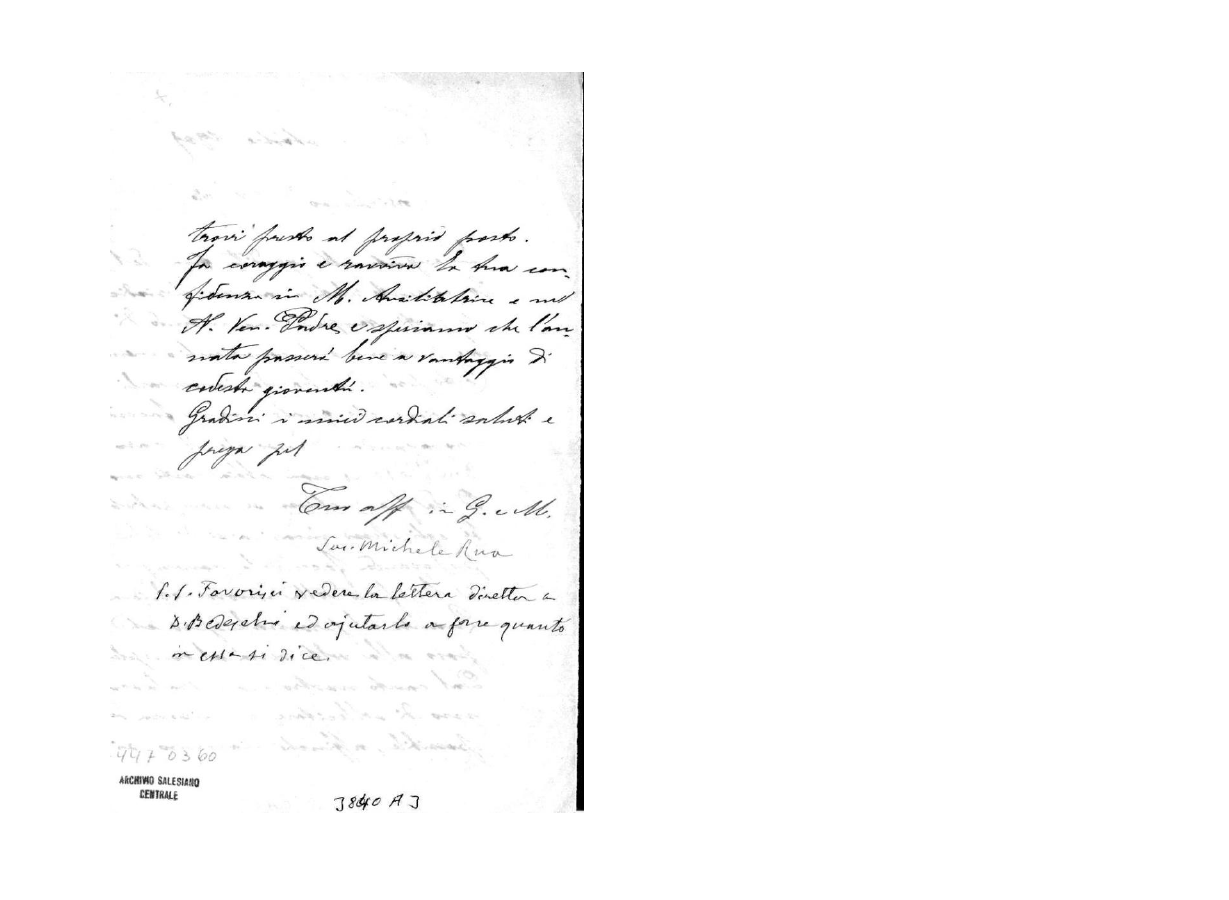 trovi presto al proprio posto.
Fa coraggio e ravviva la tua con-
fidenza in M. Ausiliatrice e nel
N. Ven. Padre, e speriamo che l'an-
nata passerà bene a vantaggio di
codesta gioventù.
Gradisci i miei cordiali saluti e
prega pel
Tuo aff in G. e M.
Sac. Michele Rua
P.S. Favorisci vedere la lettera diretta a
D. Bedeschi ed ajutarlo a fare quanto
in essa si dice.
4470360
ARCHIVIO SALESIANO
CENTRALE
3840 A 3